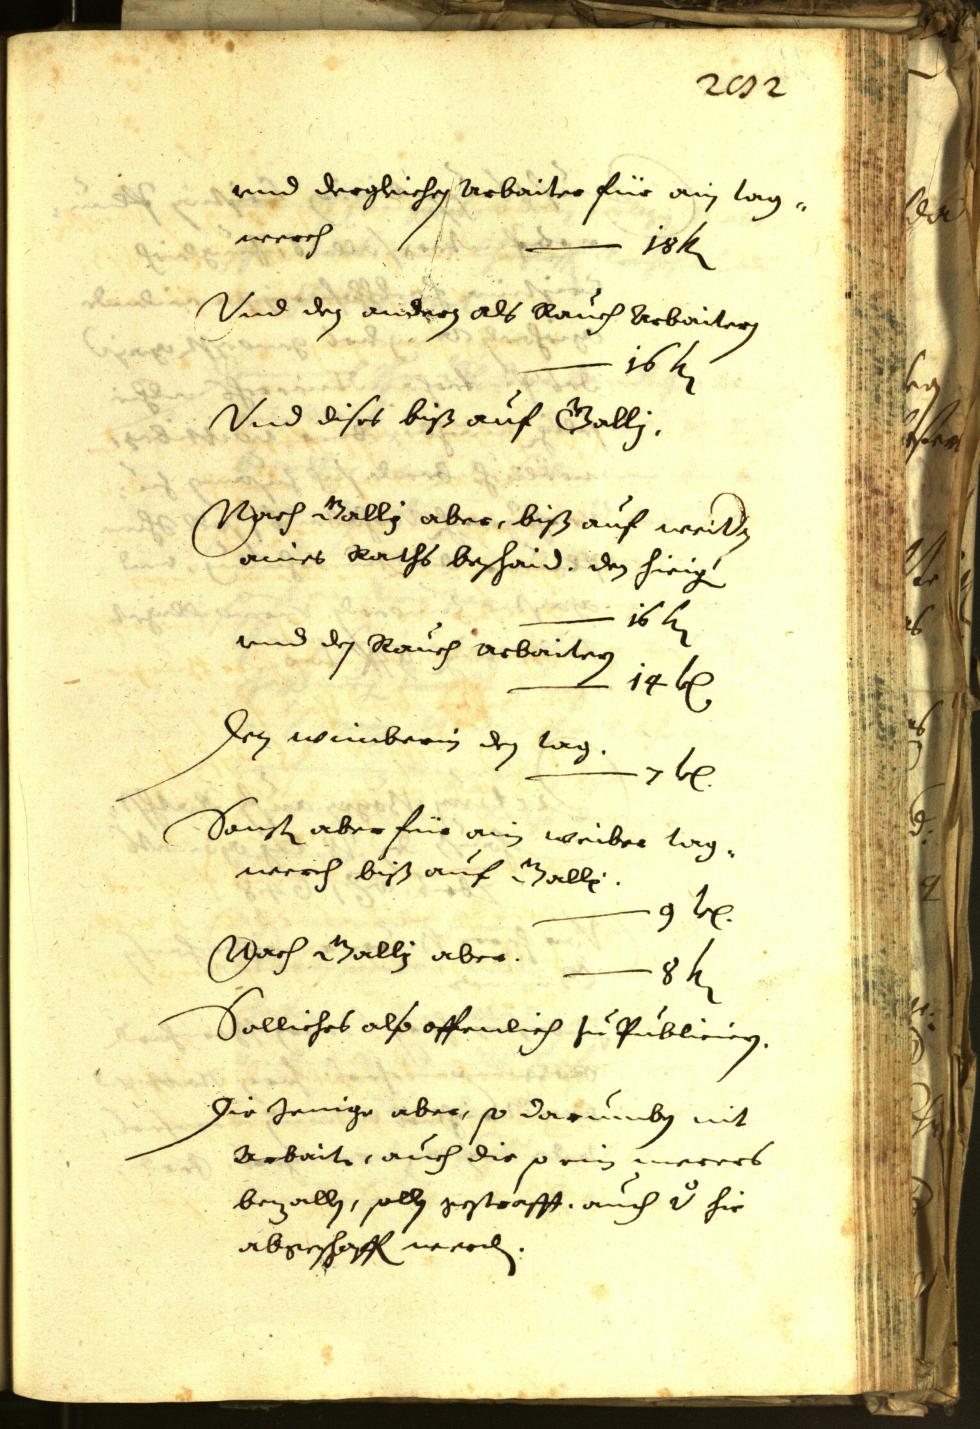 202
vnd dergleichen Arbaiter für ain tag„
werch — 18 k
Vnd den andern als Rauch Arbaitern
— 16 k
Vnd dises biß auf Gallj.
Nach Gallj aber, biß auf weitern
aines Raths beschaid. den hieigen
— 16 k
vnd den Rauch arbaitern
— 14 kr.
Den wimberin den tag.
— 7 kr.
Sonst aber für ain weiber tag„
werch biß auf Gallj.
— 9 kr.
Nach Gallj aber. — 8 k
Solliches also offenlich zu Publiciern.
Die Jenige aber, so darumben nit
Arbaiten, auch die so ein merers
bezallen, sollen gestrafft. auch hie
abgeschafft werden.